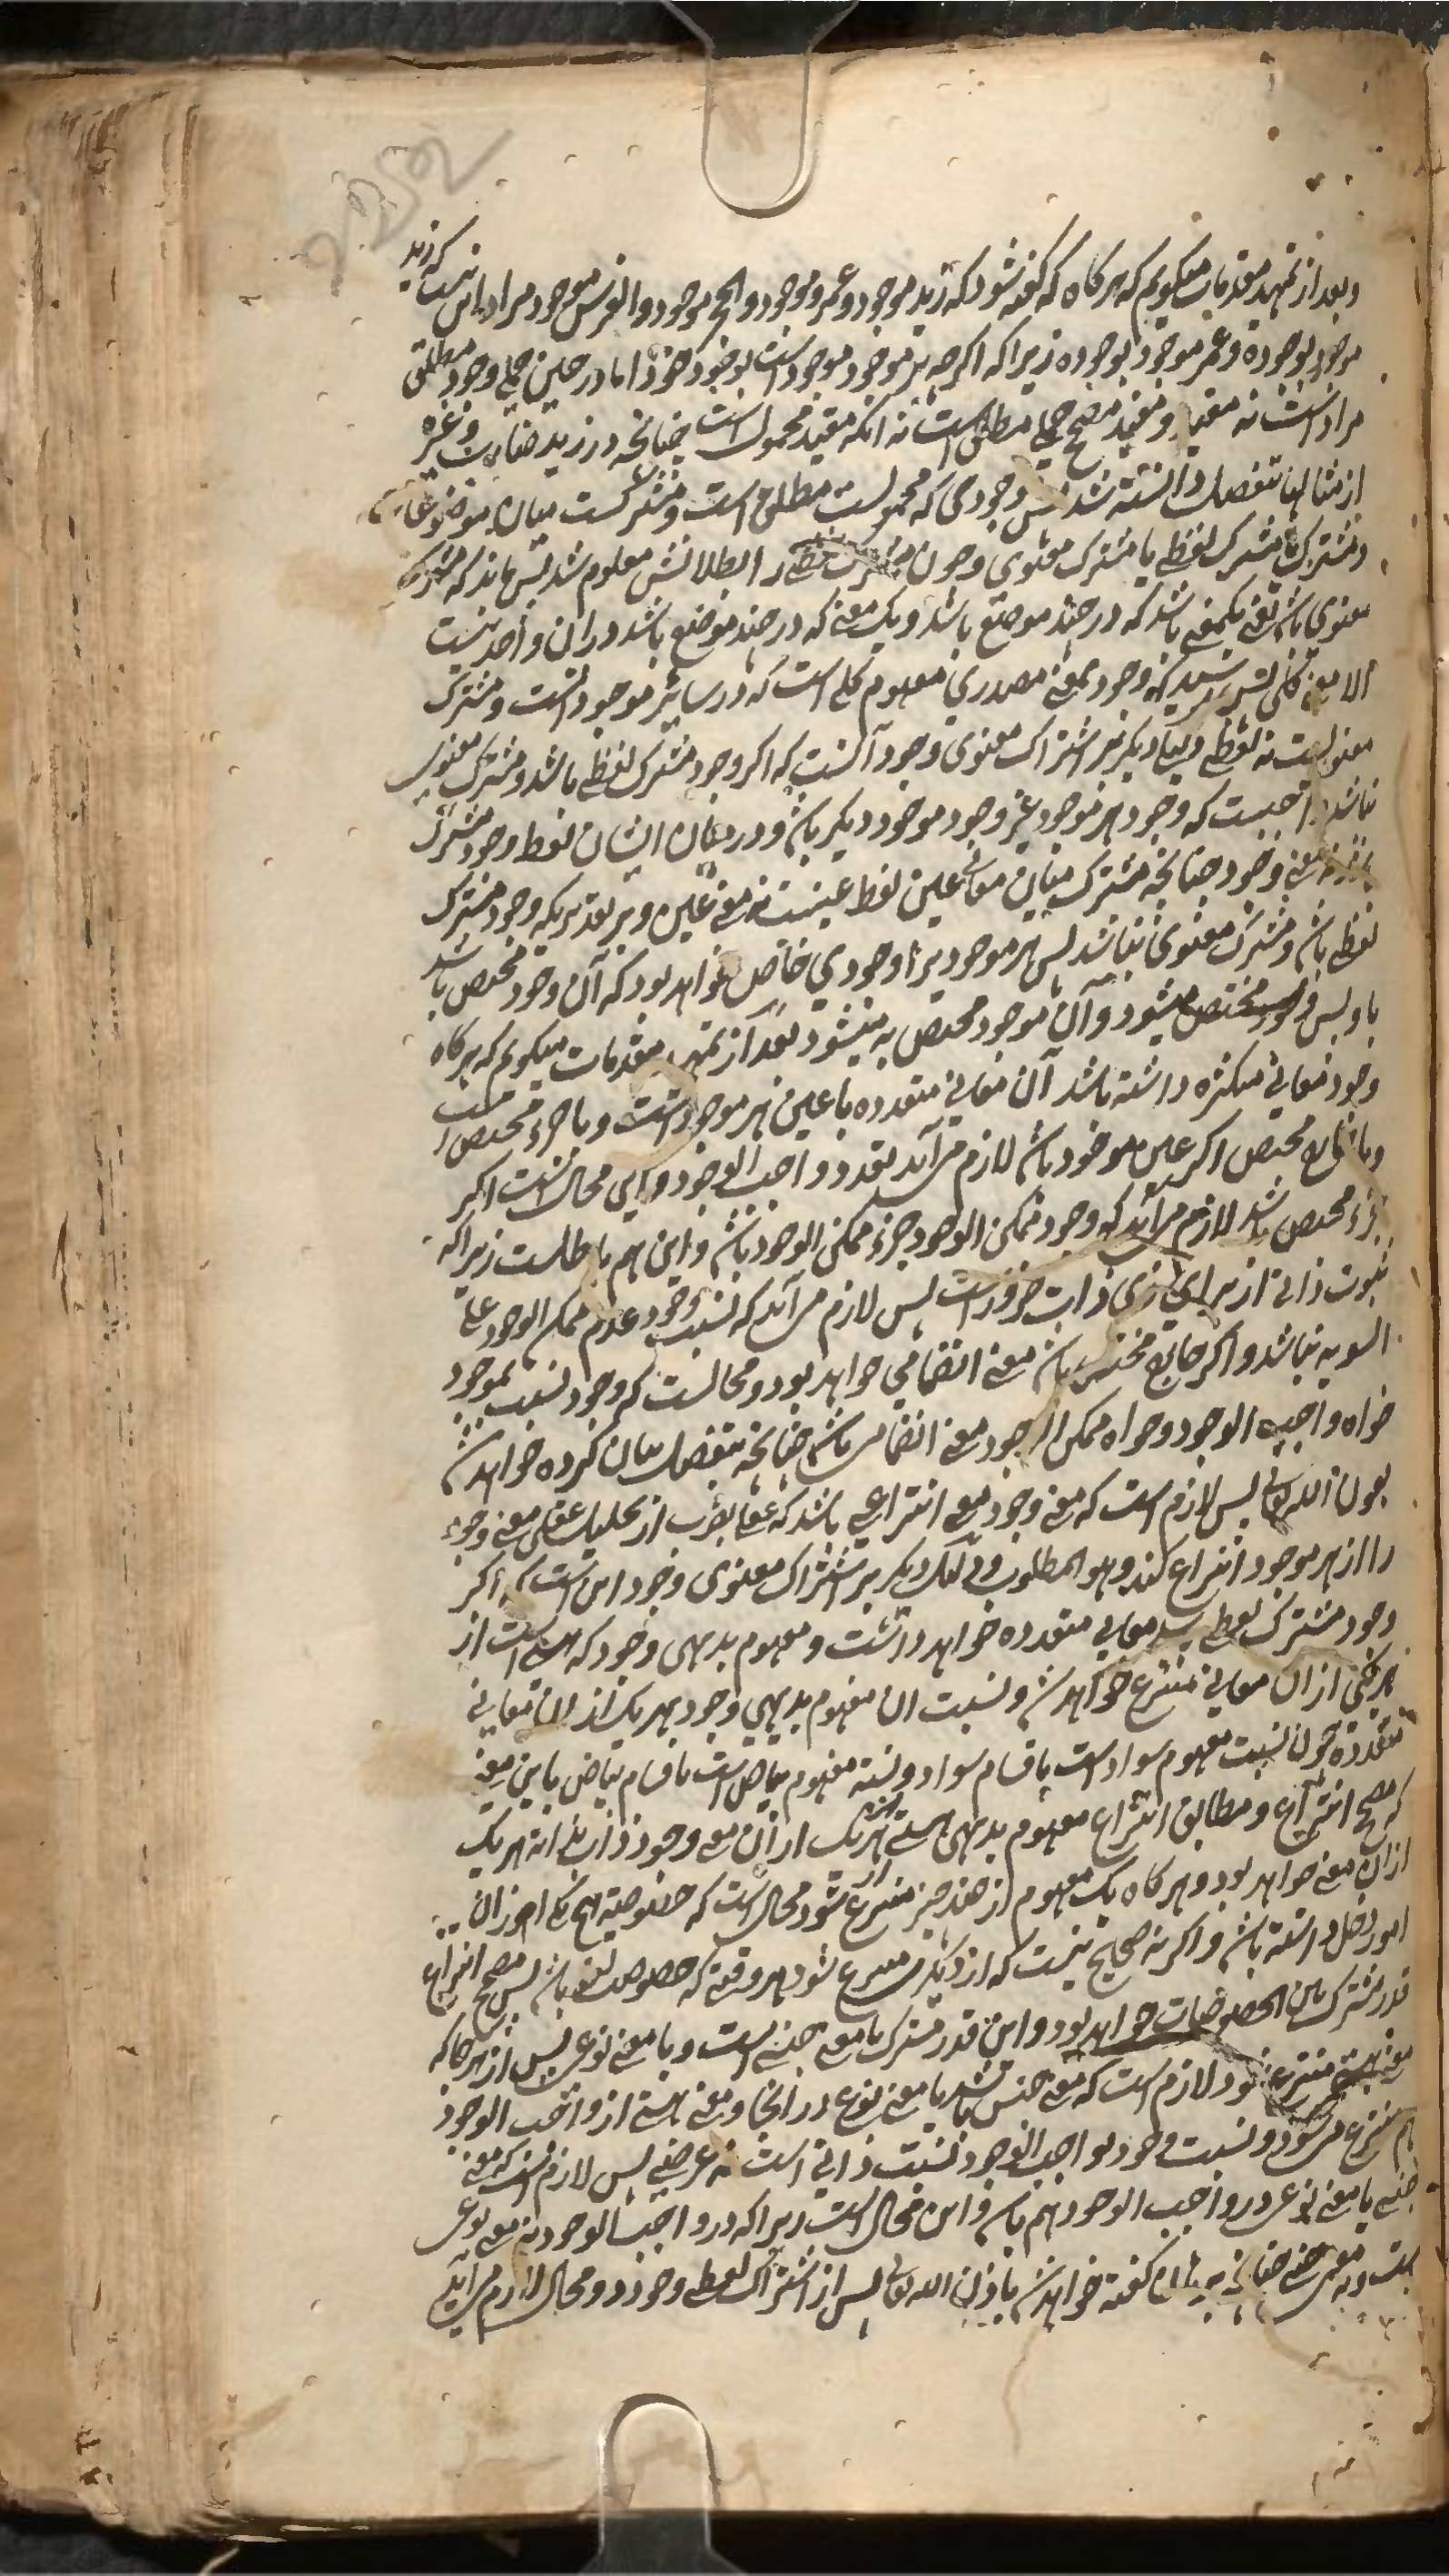 وبعد از تمهید مقدمات میگویم که هر کاه که کفته شود که زید موجود و عمرو موجود والحجر موجود والفرس موجود مراد این نیست که زید
موجود بوجوده وعمر موجود بوجوده زیرا که اکرچه هر موجود موجود است بوجود خود اما در حین حمل وجود مطلق
مراد است نه مقید و مقید مصحح حمل مطلق است نه انکه مقید محمول است چنانچه در زید ضارب وغیره
از مثالها بتفصیل دانسته شد پس وجودی که محمولست مطلق است و مشترکست میان موضوعات
و مشترک یا مشترک لفظی یا مشترک معنوی و چون مشترک لفظی را بطلانش معلوم شد پس ماند که مشترک
معنوی باشد یعنی یکمعنی باشد که در چند موضع باشد و یک معنی که در چند موضع باشد در ان واحد نیست
الا معنی کلی پس رسید که وجود بمعنی مصدری مفهوم کلی است که در سایر موجود است و مشترک
معنویست نه لفظی و دلیل دیکر بر اشتراک معنوی وجود آنست که اکر وجود مشترک لفظی باشد و مشترک معنوی
نباشد واجبست که وجود هر موجود غیر وجود موجود دیکر باشد و در میان ایشان لفظ وجود مشترک
نه معنی وجود چنانچه مشترک میان معانی عین لفظ عینست نه معنی عین و بر تقدیریکه وجود مشترک
لفظی باشد و مشترک معنوی نباشد پس هر موجود برا وجودی خاص خواهد بود که آن وجود مختص باشد
باو پس وجود مختص میشود و آن موجود مختص به میشود بعد از تمهید مقدمات میکویم که هر کاه
وجود معانی متکثره داشته باشد آن معانی متعدده یا عین هر موجود است و یا جزء مختص است
و یا خارج مختص اکر عین موجود باشد لازم می آید تعدد واجب الوجود و این محال است اکر
جزء مختص باشد لازم می آید که وجود ممکن الوجود جزء ممکن الوجود باشد و این هم باطلست زیرا که
ثبوت ذاتی از برای ذی ذات ضرور است پس لازم می آید که نسبت وجود و عدم ممکن الوجود علی
السویه نباشد و اکر خارج مختص باشد معنی انضمامی خواهد بود و محالست که وجود نسبت بموجود
خواه واجب الوجود و خواه ممکن الوجود معنی انضمامی باشد چنانچه بتفصیل بیان کرده خواهد شد
بعون الله تعالی پس لازم است که معنی وجود معنی انتزاعی باشد که عقل بضرب از تحلیلات عقلی معنی وجود
را از هر موجود انتزاع کند وهو المطلوب و دلیل دیکر بر اشتراک معنوی وجود این است که اکر
وجود مشترک لفظی معانی متعدده خواهد داشت و مفهوم بدیهی وجود که هستی است از
هر یکی از ان معانی منتزع خواهد شد و نسبت ان مفهوم بدیهی وجود بهر یک از ان معانی
متعدده چون نسبت مفهوم سواد است باقسام سواد و نسبة مفهوم بیاض است باقسام بیاض باین معنی
که مصحح انتزاع و مطابق انتزاع مفهوم بدیهی هستی از هر یک از ان معنی وجود ذات بذاته هر یک
ازان معنی خواهد بود و هر کاه یک مفهوم از چند چیز منتزع شود محال است که خصوصیة هیچ یک از ان
امور دخل داشته باشد و اکر نه صحیح نیست که از دیکری منتزع شود هر وقتی که خصوصیت لغو باشد پس مصحح انتزاع
قدر مشترک بین الخصوصیات خواهد بود و این قدر مشترک یا معنی جنسی است و یا معنی نوعی پس از هر جا که
معنی هستی منتزع شود لازم است که معنی جنس باشد یا معنی نوع در انجا و معنی هستی از واجب الوجود
هم منتزع میشود و نسبت وجود بواجب الوجود نسبت ذاتی است نه عرضی پس لازم است که معنی
جنسی یا معنی نوعی در واجب الوجود هم باشد و این محال است زیرا که در واجب الوجود نه معنی نوعی
است و نه معنی جنسی چنانچه کفته خواهد شد باذن الله تعالی پس از اشتراک لفظی وجود دو محال لازم می آید